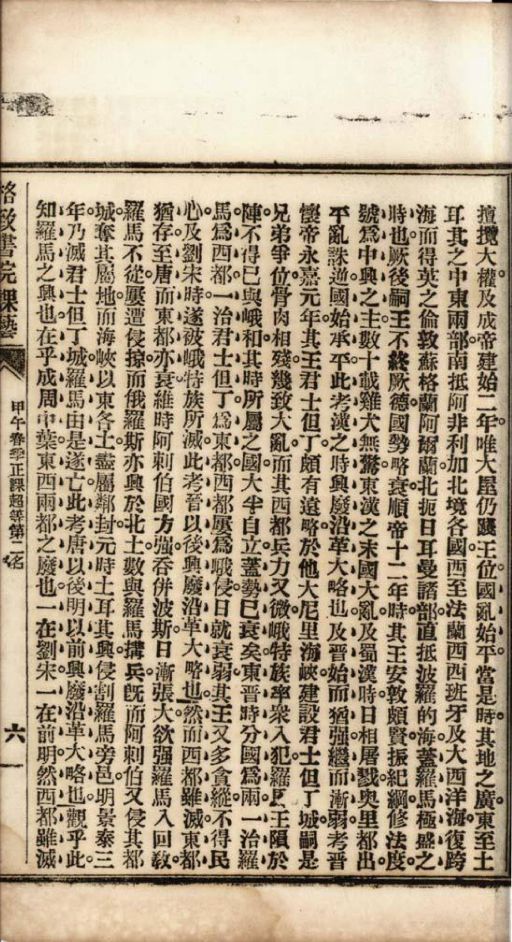 擅攬大權及成帝建始二年唯大屋仍踐王位國亂始平當是時其地之廣東至土
耳其之中東兩部南抵阿非利加北境各國西至法蘭西西班牙及大西洋海復跨
海而得英之倫敦蘇格蘭阿爾蘭北扼日耳曼諸部直抵波羅的海蓋羅馬極盛之
時也厥後嗣王不終厥德國勢略衰順帝十二年時其王安敦頗賢振紀綱修法度
號爲中興之主數十載雞犬無驚東漢之末國大亂及蜀漢時日相屠戮奧里都出
平亂誅逆國始承平此考漢之時興廢沿革大略也及晉始而猶强繼而漸弱考晉
懷帝永嘉元年其王君士但丁頗有遠略於他大尼里海峽建設君士但丁城嗣是
兄弟爭位骨肉相殘幾致大亂而其西都兵力又微峨特族率衆入犯羅馬王隕於
陣不得已與峨和其時所屬之國大半自立蓋勢已衰矣東晉時分國爲兩一治羅
馬爲西都一治君士但丁爲東都西都屢爲峨侵日就衰弱其王又多貪縱不得民
心及劉宋時遂被峨特族所滅此考晉以後興廢沿革大略也然而西都雖滅東都
猶存至唐而東都亦衰維時阿剌伯國方强吞併波斯日漸張大欲强羅馬入回敎
羅馬不從屢遭侵掠而俄羅斯亦興於北土數與羅馬搆兵旣而阿剌伯又侵其都
城奪其屬地而海峽以東各土盡屬鄰封元時土耳其興侵割羅馬旁邑明景泰三
年乃滅君士但丁城羅馬由是遂亡此考唐以後明以前興廢沿革大略也觀乎此
知羅馬之興也在乎成周中葉東西兩都之廢也一在劉宋一在前明然西都雖滅
格致書院課藝
甲午春季正課超等第二名
六